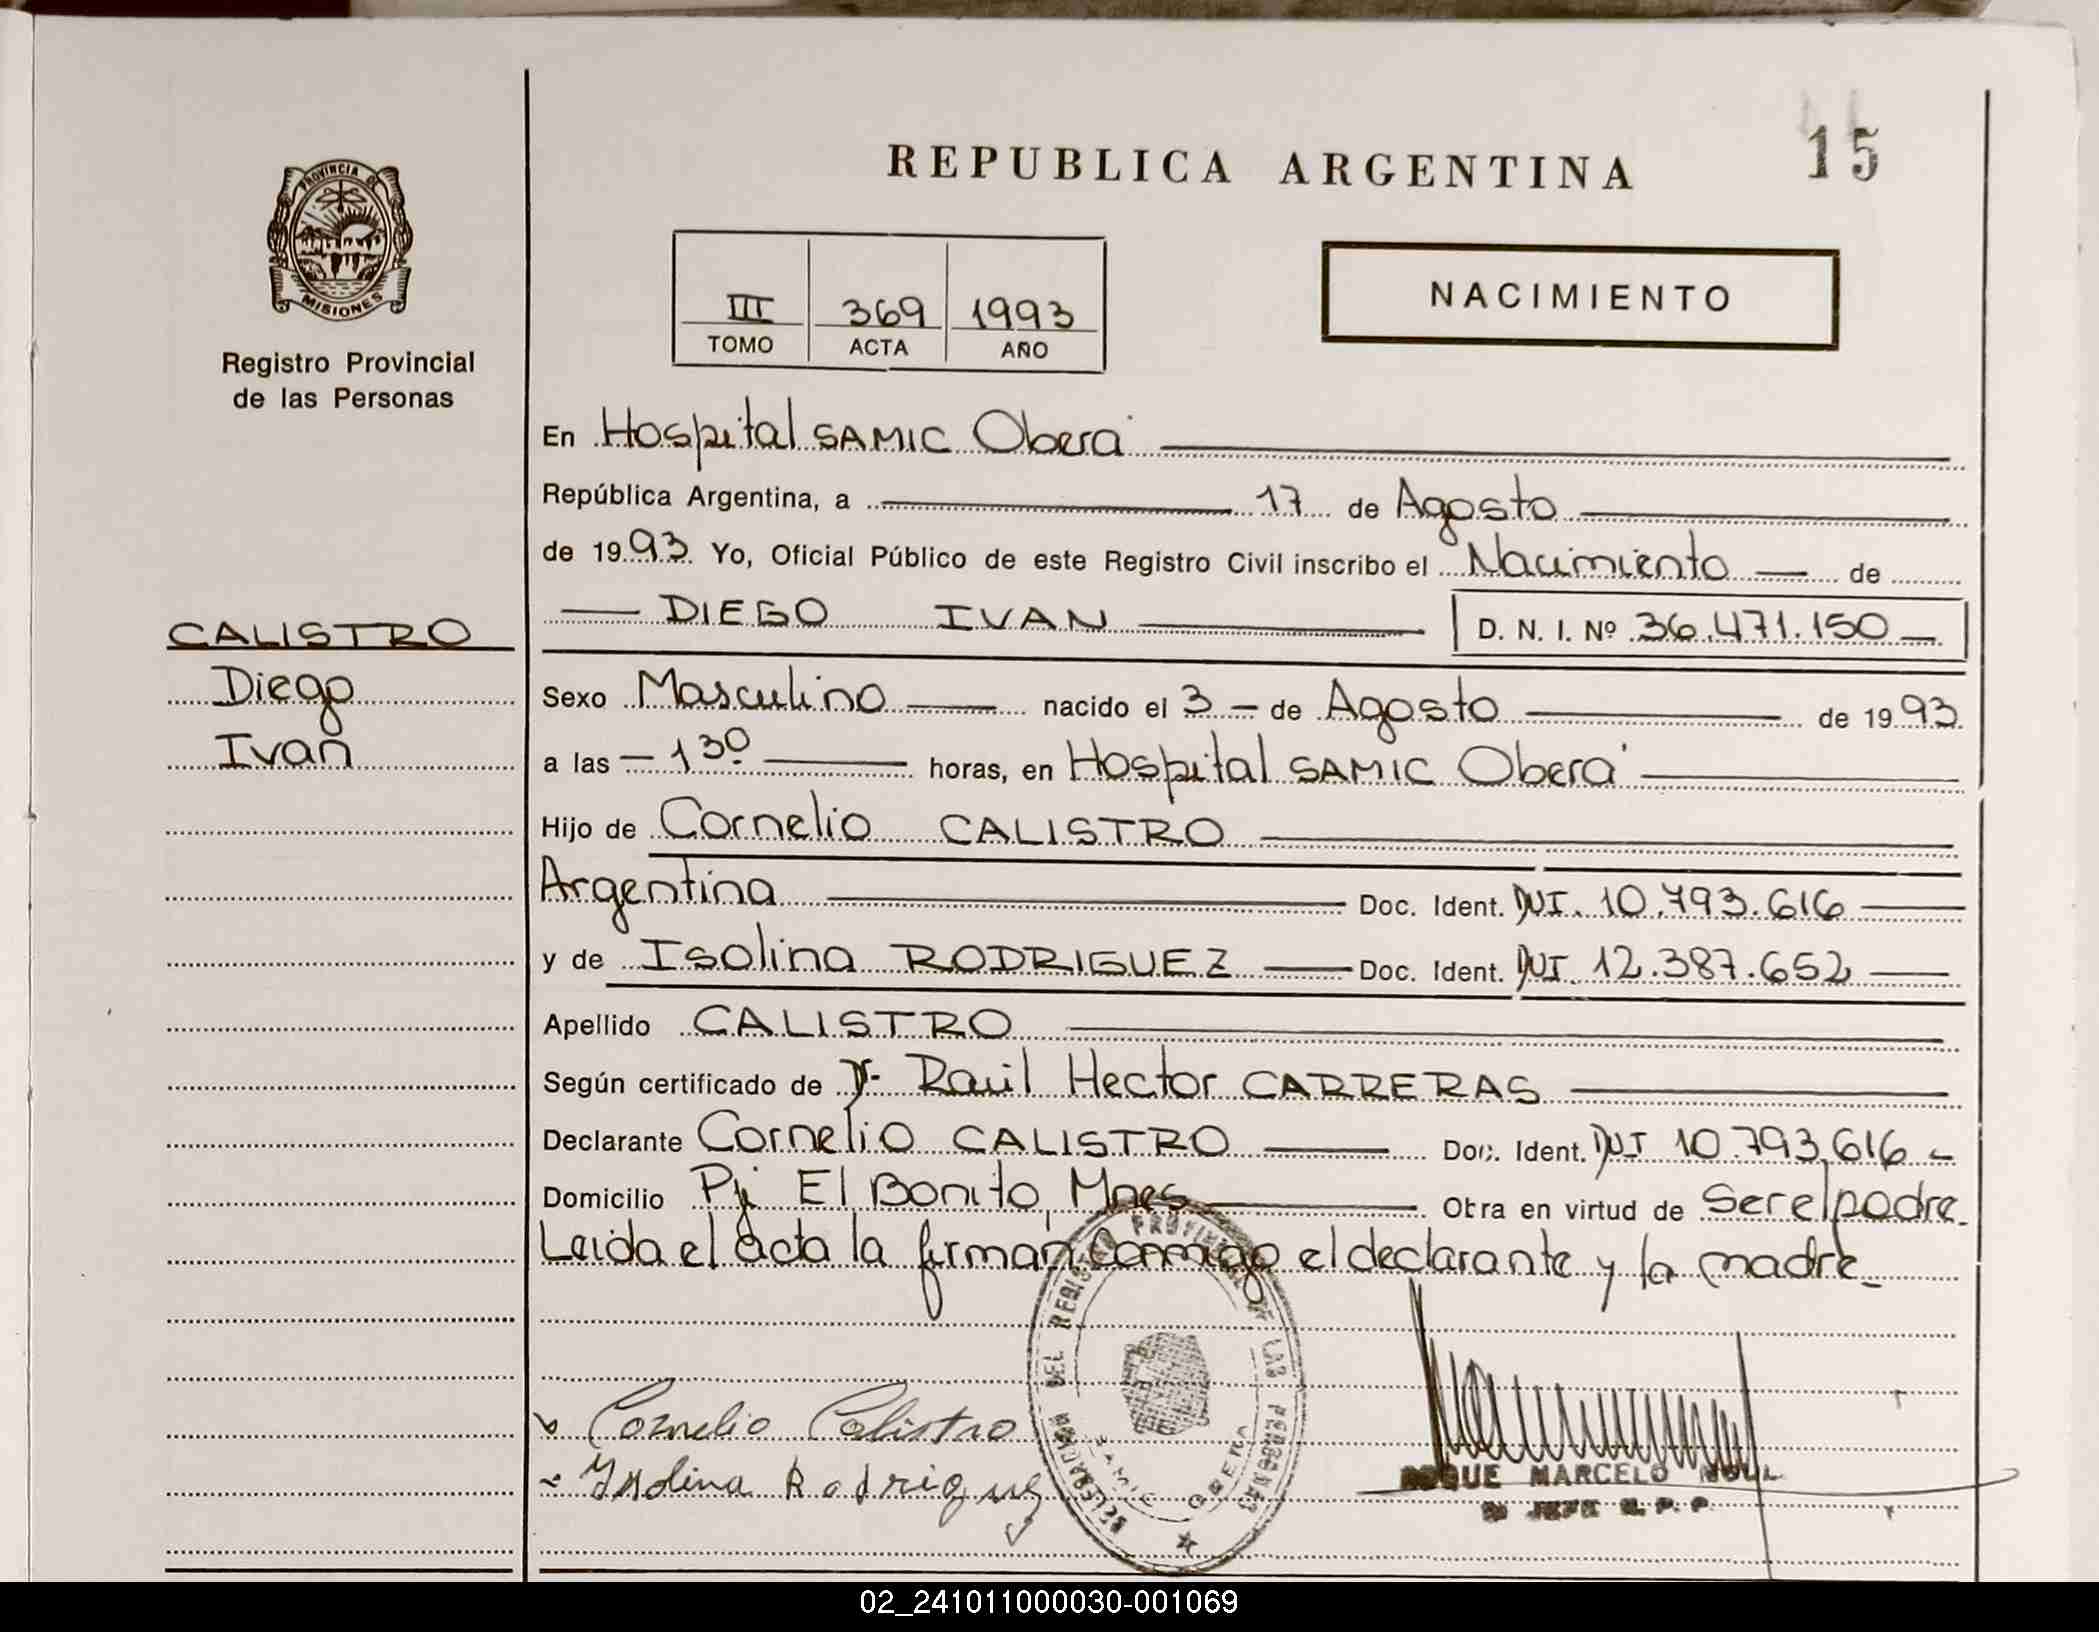 REPUBLICA ARGENTINA
15
PROVINCIA DE
MISIONES
Registro Provincial
de las Personas
III 369 1993
TOMO ACTA AÑO
NACIMIENTO
En Hospital SAMIC Oberá
República Argentina, a 17 de Agosto
de 1993 Yo, Oficial Público de este Registro Civil inscribo el Nacimiento de
DIEGO IVAN D. N. I. Nº 36.471.150
CALISTRO
Diego
Ivan
Sexo Masculino nacido el 3 de Agosto de 1993
a las 13º horas, en Hospital SAMIC Oberá
Hijo de Cornelio CALISTRO
Argentina Doc. Ident. DNI. 10.793.616
y de Isolina RODRIGUEZ Doc. Ident. DNI. 12.387.652
Apellido CALISTRO
Según certificado de Dr. Raúl Hector CARRERAS
Declarante Cornelio CALISTRO Doc. Ident. DNI 10.793.616
Domicilio Pje El Bonito, Mnes Obra en virtud de Ser el padre.
Leida el acta la firman conmigo el declarante y la madre
DELEGACION DEL REGISTRO PROVINCIAL DE LAS PERSONAS
SAMIC OBERA
Cornelio Calistro
Isolina Rodriguez
ROQUE MARCELO
JEFE R. P. P.
02_241011000030-001069